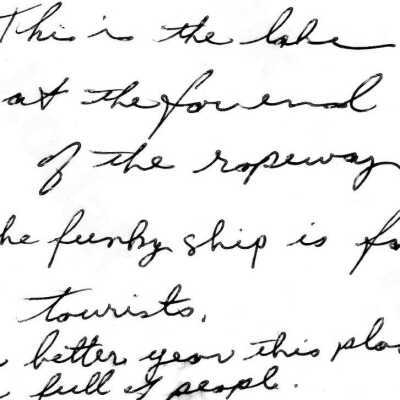 This is the lake
at the far end
of the ropeway
he funky ship is fo
tourists.
better year this plac
full of people.